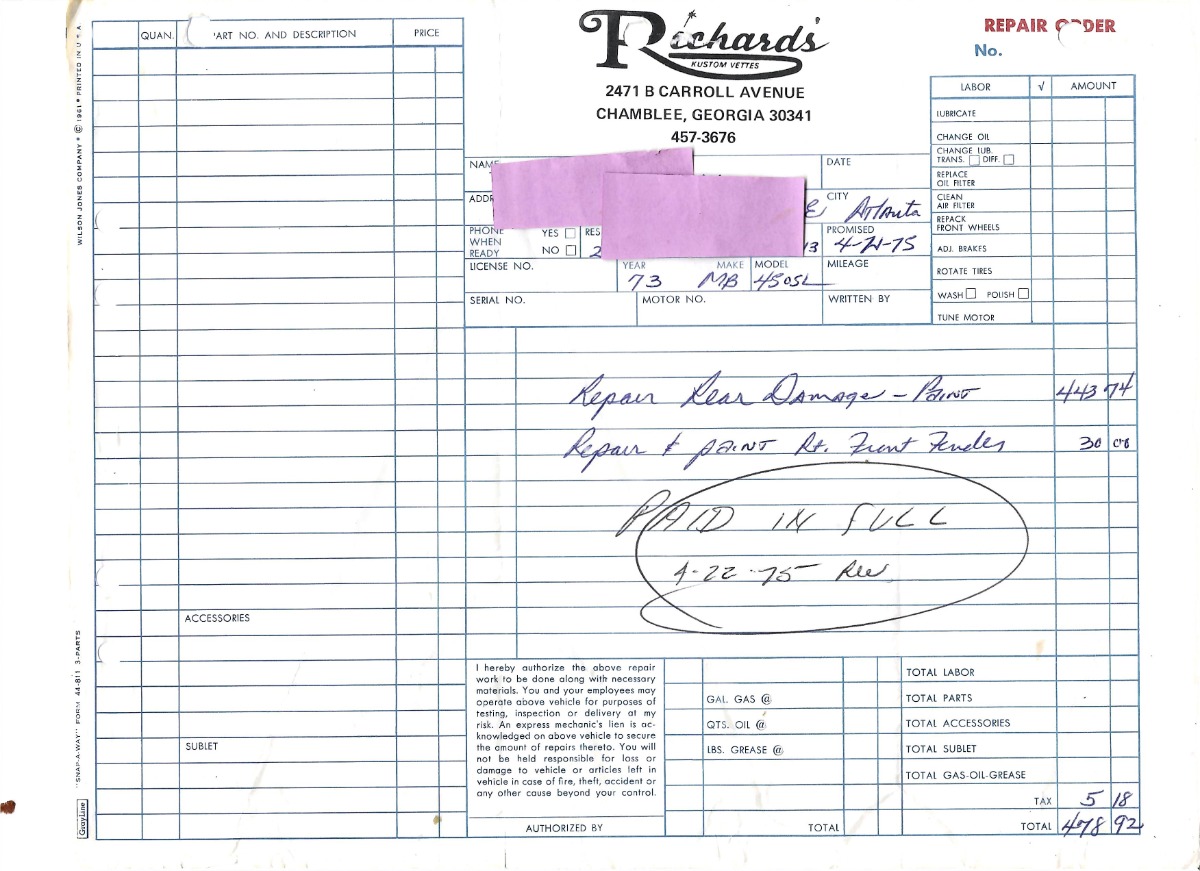 Richards'
KUSTOM VETTES
2471 B CARROLL AVENUE
CHAMBLEE, GEORGIA 30341
457-3676
REPAIR ORDER
No.
WILSON JONES COMPANY • © 1961 • PRINTED IN U.S.A.
"SNAP-A-WAY" FORM 44-811 3-PARTS
GrayLine
QUAN. PART NO. AND DESCRIPTION PRICE
ACCESSORIES
SUBLET
NAME DATE
ADDR E CITY Atlanta
PHONE WHEN READY YES NO RES 2 13 PROMISED 4-21-75
LICENSE NO. YEAR 73 MAKE MB MODEL 450SL MILEAGE
SERIAL NO. MOTOR NO. WRITTEN BY
LABOR √ AMOUNT
LUBRICATE
CHANGE OIL
CHANGE LUB.
TRANS. DIFF.
REPLACE
OIL FILTER
CLEAN
AIR FILTER
REPACK
FRONT WHEELS
ADJ. BRAKES
ROTATE TIRES
WASH POLISH
TUNE MOTOR
Repair Rear Damage - Paint 443 74
Repair & paint Rt. Front Fender 30 00
PAID IN FULL
4-22-75
I hereby authorize the above repair
work to be done along with necessary
materials. You and your employees may
operate above vehicle for purposes of
testing, inspection or delivery at my
risk. An express mechanic's lien is ac-
knowledged on above vehicle to secure
the amount of repairs thereto. You will
not be held responsible for loss or
damage to vehicle or articles left in
vehicle in case of fire, theft, accident or
any other cause beyond your control.
AUTHORIZED BY
GAL. GAS @
QTS. OIL @
LBS. GREASE @
TOTAL
TOTAL LABOR
TOTAL PARTS
TOTAL ACCESSORIES
TOTAL SUBLET
TOTAL GAS-OIL-GREASE
TAX 5 18
TOTAL 478 92